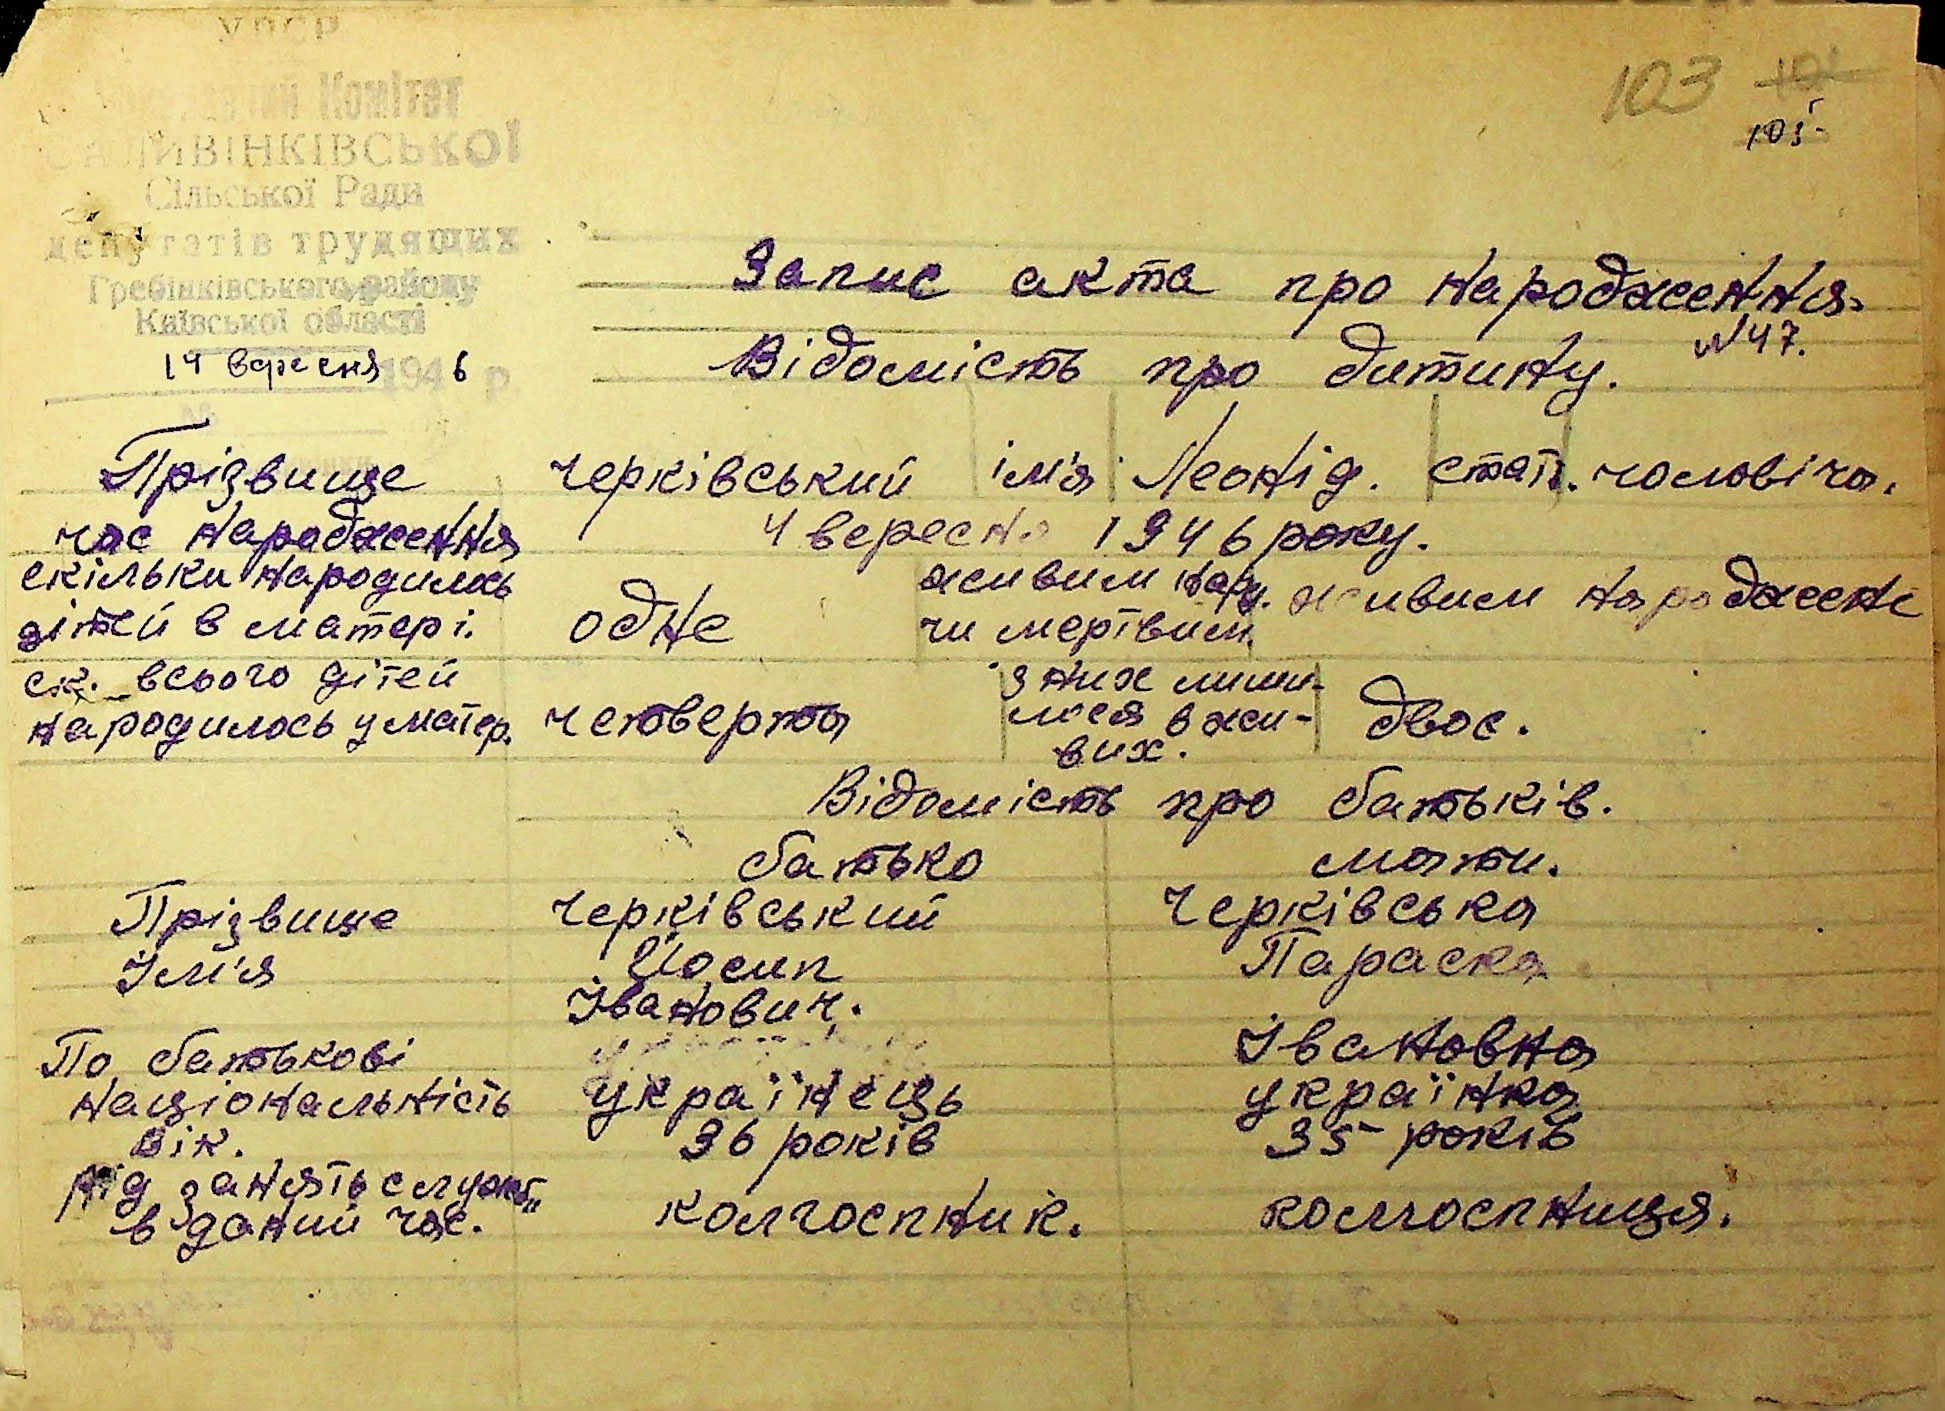 УРСР
Комітет
САЛИВІНКІВСЬКОЇ
Сільської Ради
депутатів трудящих
Гребінківського району
Київської області
14 вересня 1946 р
№
103
101
103
Запис акта про народження
№ 47.
Відомість про дитину.
Прізвище Черківський ім'я Леонід. стать. чоловіча.
час народження 4 вересня 1946 року.
скільки народилось дітей в матері. одне живим нар. чи мертвим живим народжені
ск. всього дітей народилось у матер. четверта з них лишилося в живих. двоє.
Відомість про батьків.
батько мати.
Прізвище Черківський Черківська
Ім'я Йосип Параска
Іванович.
По батькові Івановна
національність українець українка
Вік. 36 років 35 років
рід занять служб. в даний час. колгоспник. колгоспниця.